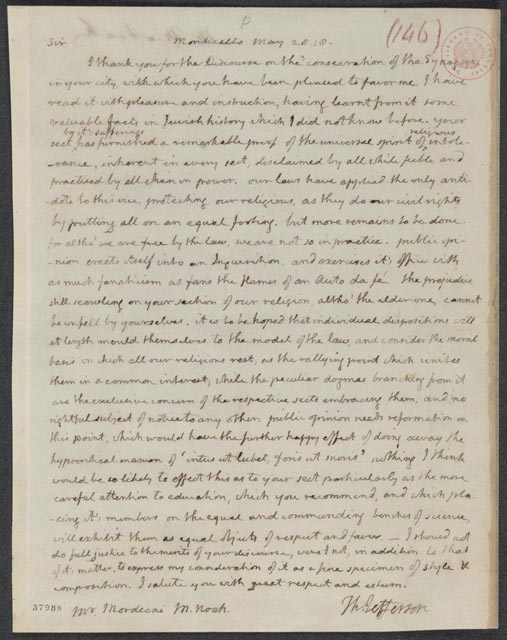 (146)
Sir Monticello May 28. 18.
I thank you for the Discourse on the consecration of the Synagogue
in your city, with which you have been pleased to favor me. I have
read it with pleasure and instruction, having learnt from it some
valuable facts in Jewish history which I did not know before. your
sect by it's sufferings has furnished a remarkable proof of the universal spirit of religious intole-
-rance, inherent in every sect, disclaimed by all while feeble, and
practised by all when in power. our laws have applied the only anti-
dote to this vice, protecting our religious, as they do our civil rights
by putting all on an equal footing. but more remains to be done.
for altho' we are free by the law, we are not so in practice. public opi-
-nion erects itself into an Inquisition, and exercises it's office with
as much fanaticism as fans the flames of an Auto da fé. the prejudice
still scowling on your section of our religion, altho' the elder one, cannot
be unfelt by yourselves. it is to be hoped that individual dispositions will
at length mould themselves to the model of the law, and consider the moral
basis on which all our religions rest, as the rallying point which unites
them in a common interest; while the peculiar dogmas branching from it
are the exclusive concern of the respective sects embracing them, and no
rightful subject of notice to any other. public opinion needs reformation on
this point, which would have the further happy effect of doing away the
hypocritical maxim of 'intus ut lubet, foris ut moris'. nothing I think
would be so likely to effect this as to your sect particularly as the more
careful attention to education, which you recommend, and which pla-
cing it's members on the equal and commanding benches of science,
will exhibit them as equal objects of respect and favor. — I should not
do full justice to the merits of your discourse, were I not, in addition to that
of it's matter, to express my consideration of it as a fine specimen of style &
composition. I salute you with great respect and esteem.
Th: Jefferson
37988 Mr. Mordecai M. Noah.